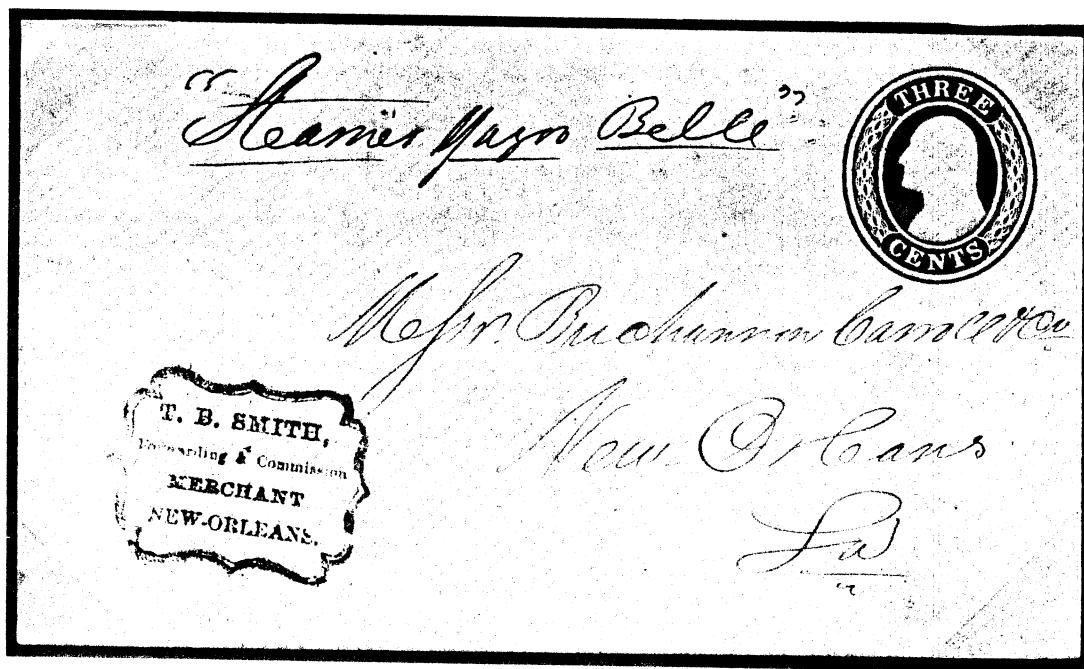 "Steamer Yazoo Belle"
THREE
CENTS
Messrs. Buchannon Carroll & Co
New Orleans
La
T. B. SMITH,
Forwarding & Commission
MERCHANT
NEW-ORLEANS.